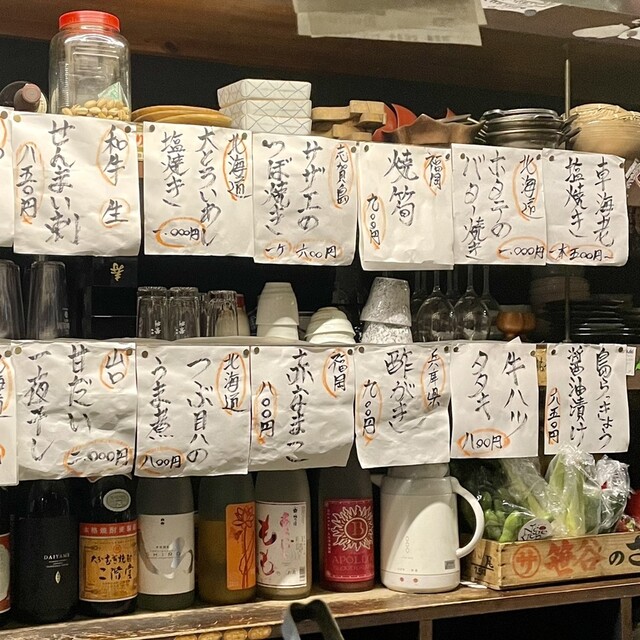 和牛 生
せんまい刺
八五〇円
北海道
大とろいわし
塩焼き
一.〇〇〇円
志賀島
サザエの
つぼ焼き
一ケ 六〇〇円
福岡
焼筍
九〇〇円
北海道
ホタテの
バター焼き
一.〇〇〇円
車海老
塩焼き
一本 五〇〇円
山口
甘だい
一夜干し
二.〇〇〇円
北海道
つぶ貝の
うま煮
八〇〇円
福岡
赤なまこ
八〇〇円
酢がき
九〇〇円
牛ハツ
タタキ
八〇〇円
島らっきょう
醤油漬け
八五〇円
DAIYAME
二階堂
もも
サ 笹谷の